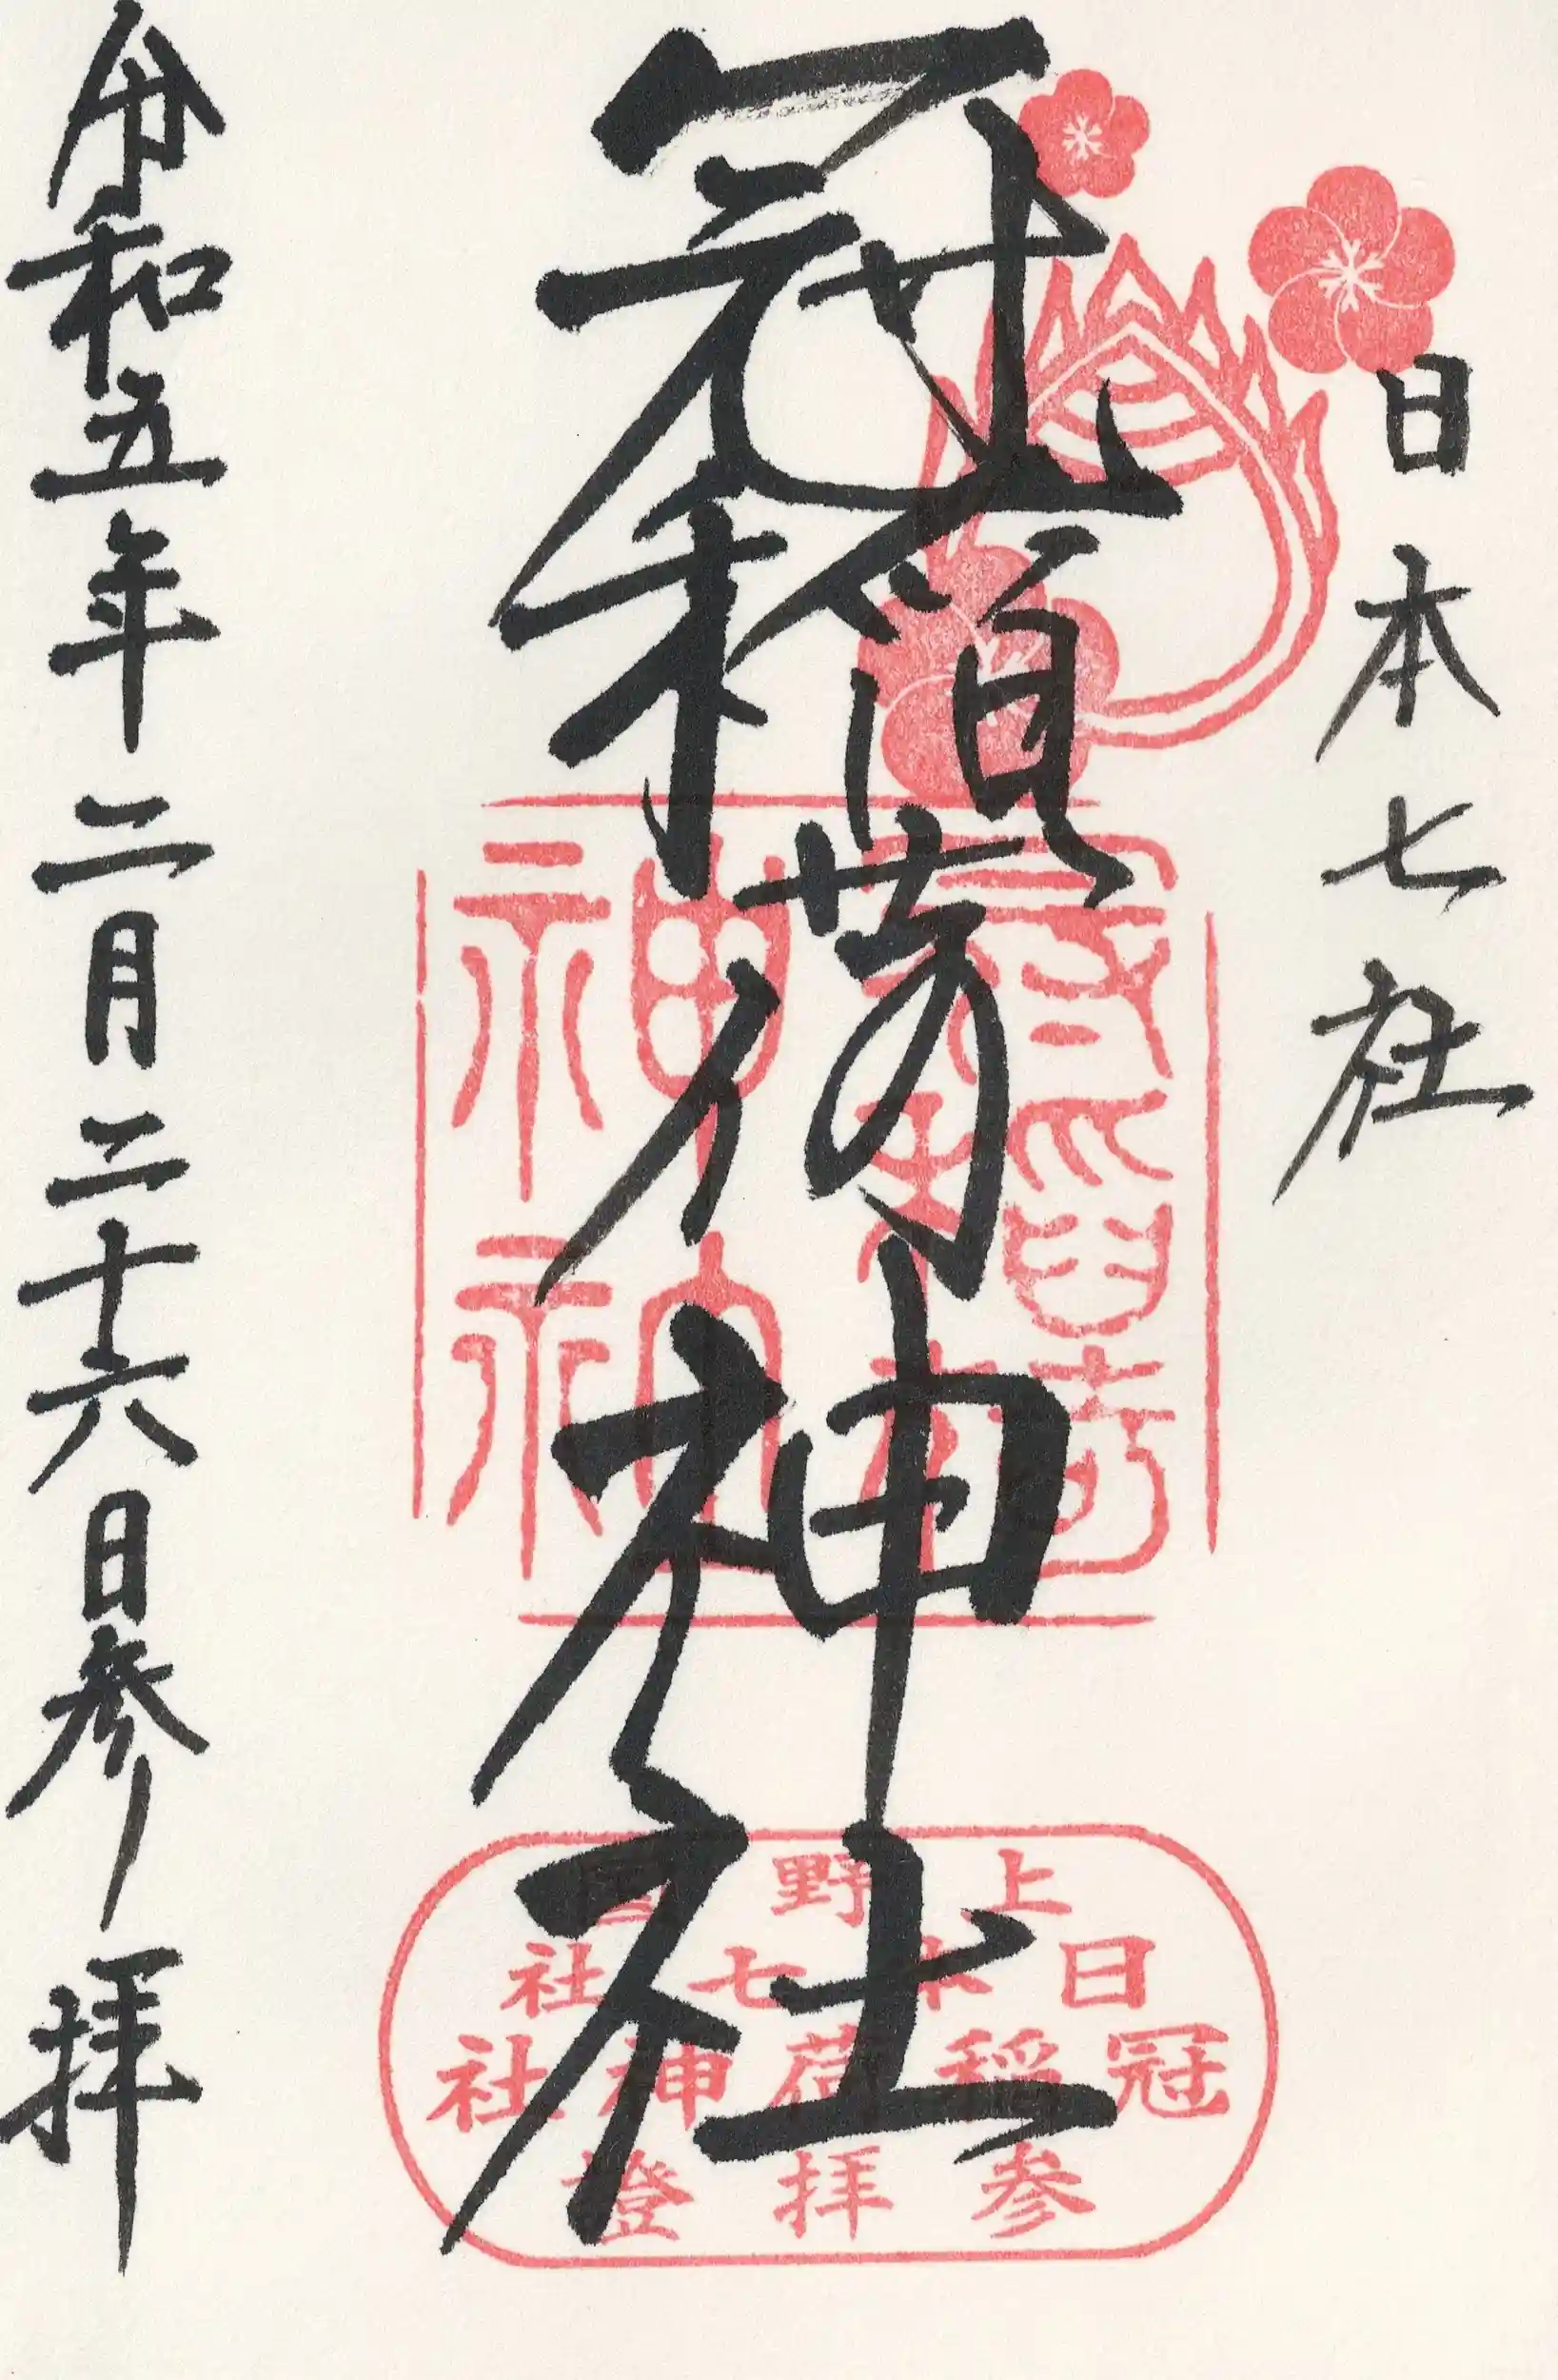 日本七社
冠稲荷神社
冠稲荷
神社
上野国
日本七社
冠稲荷神社
参拝登
令和五年二月二十六日参拝